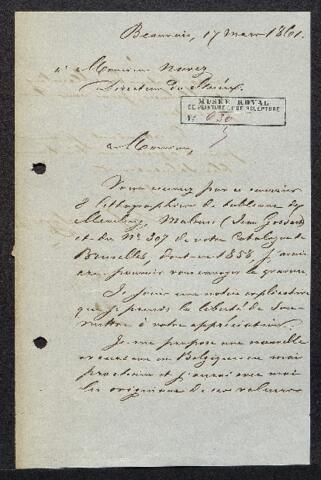 Beauvais, 17 Mars 1861.
à Monsieur Navez
Directeur du Musée.
MUSÉE ROYAL
DE PEINTURE ET DE SCULPTURE
N° 630
Monsieur,
Vous recevez par ce courrier
8 lithographies de tableaux de
Memling, Mabuse (Jean Gossart)
et du N° 307 de votre Catalogue de
Bruxelles, dont en 1858 j'avais
cru pouvoir vous envoyer la gravure.
Je joins une notice explicative
que je prends la liberté de sou-
mettre à votre appréciation.
Je me propose une nouvelle
excursion en Belgique en mai
prochain et j'aurai avec moi
les originaux de ces